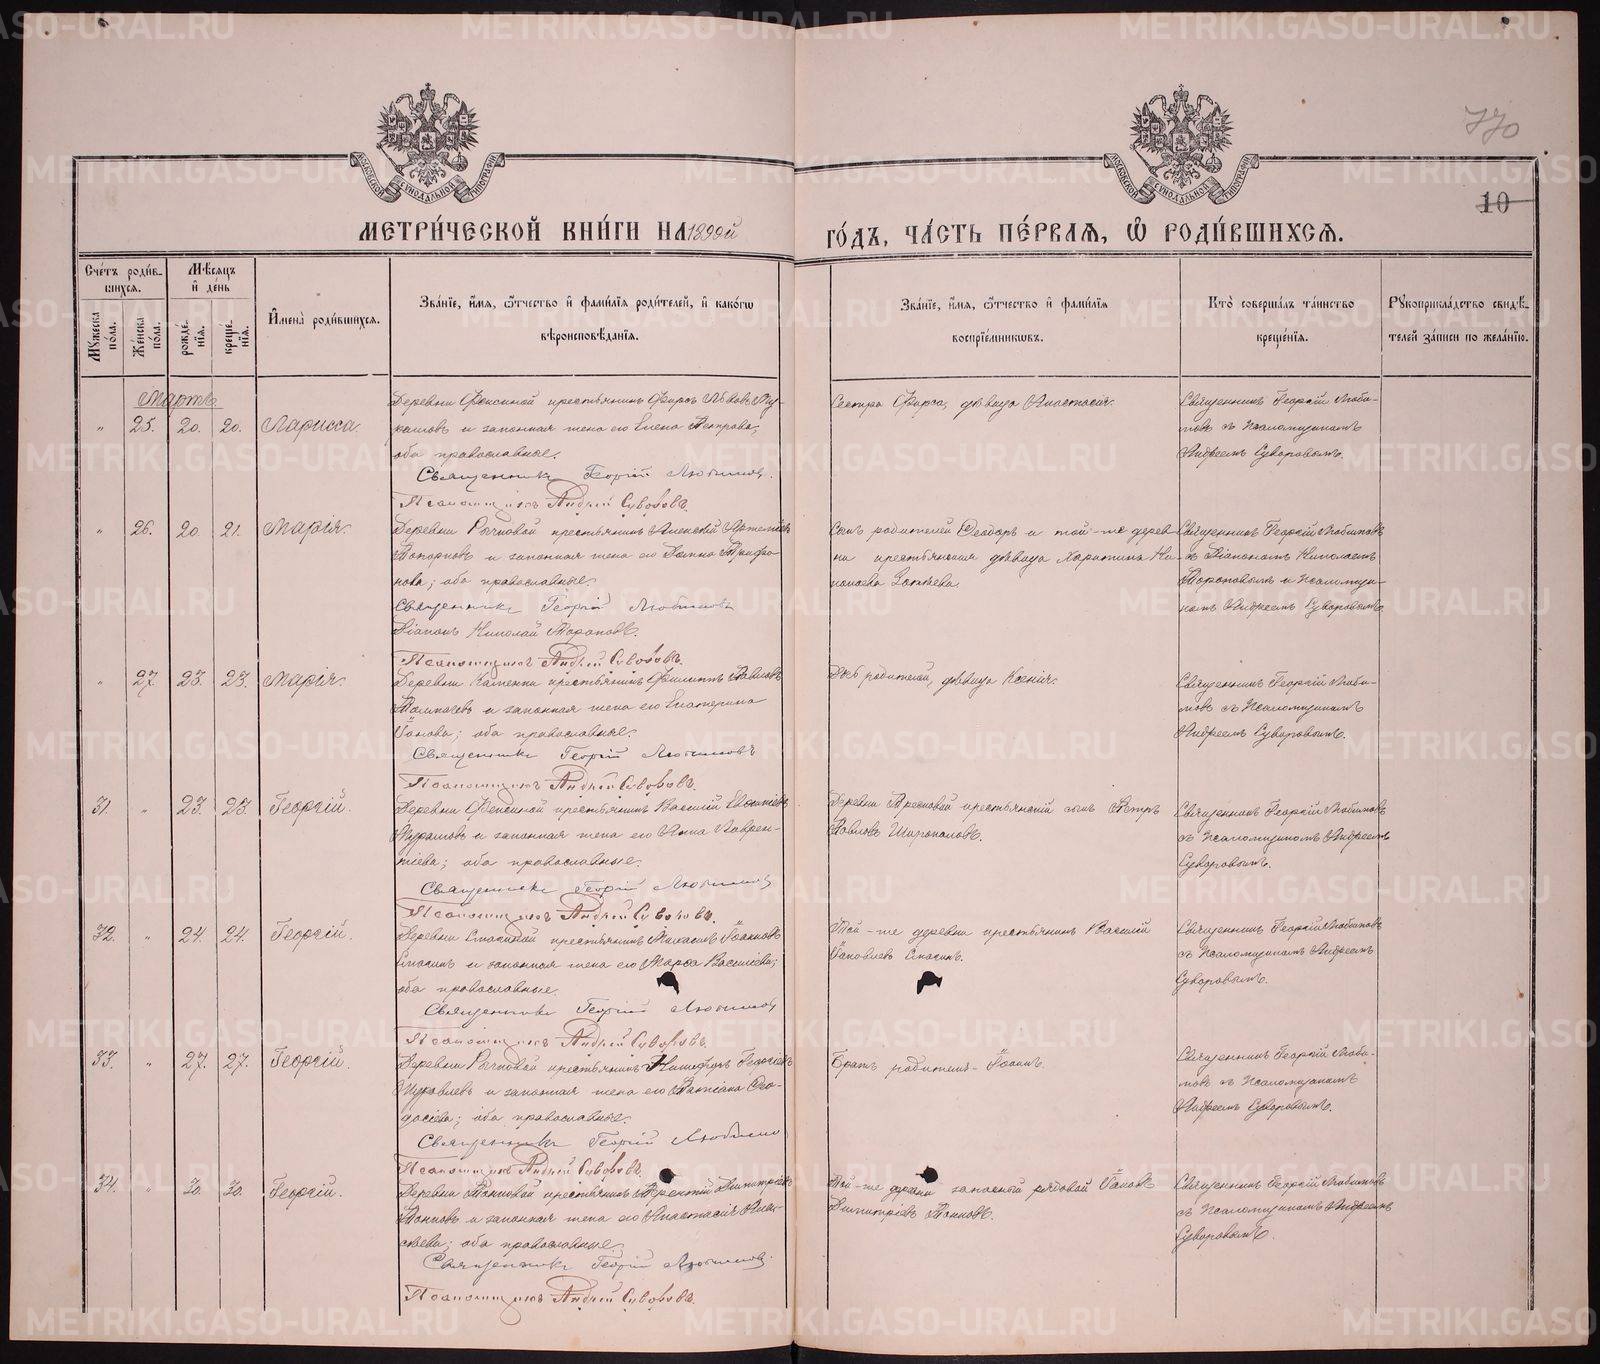 770
10
МЕТРИ́ЧЕСКОЙ КНИ́ГИ НА 1899й ГО́ДЪ, ЧА́СТЬ ПЕ́РВАЯ, Ѡ҆ РОДИ́ВШИХСЯ.
Сче́тъ роди́в-
шихся.
Му́жеска по́ла.
Же́нска по́ла.
Мѣ́сяцъ
и҆ де́нь
рожде́нїя.
креще́нїя.
И҆мена̀ роди́вшихся.
Зва́нїе, и҆́мя, ѻ҆́тчество и҆ фами́лїя роди́телей, и҆ како́гѡ
вѣроисповѣ́данїя.
Зва́нїе, и҆́мя, ѻ҆́тчество и҆ фами́лїя
воспрїе́мникѡвъ.
Кто̀ соверша́лъ та́инство
креще́нїя.
Рꙋкоприкла́дство свидѣ́-
телей за́писи по жела́нїю.
Мартъ
" 25. 20. 20. Ларисса.
Деревни крестьянинъ Фирсъ
и законная жена его Елена Петрова;
оба православные.
Священникъ Георгій Любимов
Псаломщикъ Андрей Суворовъ.
Сестра Фирса, дѣвица Анастасія.
Священникъ Георгій Люби-
мовъ съ Псаломщикомъ
Андреемъ Суворовымъ.
" 26. 20. 21. Марія.
Деревни крестьянинъ Алексѣй
и законная жена его Анна Трифо-
нова; оба православные.
Священникъ Георгій Любимовъ
Діаконъ Николай Торопов.
Псаломщикъ Андрей Суворовъ.
Сынъ родителей Ѳеодоръ и той-же дерев-
ни крестьянская дѣвица Харитина Ни-
колаева
Священникъ Георгій Любимовъ
съ Діакономъ Николаемъ
Тороповымъ и Псаломщи-
комъ Андреемъ Суворовымъ.
" 27. 23. 23. Марія.
Деревни Каменки крестьянинъ Филиппъ Павловъ
и законная жена его Екатерина
оба православные.
Священникъ Георгій Любимовъ
Псаломщикъ Андрей Суворовъ.
Дочь родителей, дѣвица Ксенія.
Священникъ Георгій Люби-
мовъ съ Псаломщикомъ
Андреемъ Суворовымъ.
31. " 23. 23. Георгій.
Деревни крестьянинъ Василій
и законная жена его Анна Лаврен-
тіева; оба православные.
Священникъ Георгій Любимов
Псаломщикъ Андрей Суворовъ.
Деревни крестьянскій сынъ Петръ
Павловъ Широпаловъ.
Священникъ Георгій Любимовъ
съ Псаломщикомъ Андреемъ
Суворовымъ.
32. " 24. 24. Георгій.
Деревни Спасиной крестьянинъ Іоанновъ
Спасинъ и законная жена его Марѳа Васильева;
оба православные.
Священникъ Георгій Любимов
Псаломщикъ Андрей Суворовъ.
Той-же деревни крестьянинъ Василій
Яковлевъ Спасинъ.
Священникъ Георгій Любимовъ
съ Псаломщикомъ Андреемъ
Суворовымъ.
33. " 27. 27. Георгій.
Деревни крестьянинъ Никифоръ Георгіевъ
Журавлевъ и законная жена его Ѳео-
досіева; оба православные.
Священникъ Георгій Любимо
Псаломщикъ Андрей Суворовъ.
Братъ родителя - Іоаннъ.
Священникъ Георгій Люби-
мовъ съ Псаломщикомъ
Андреемъ Суворовымъ.
34. " 30. 30. Георгій.
Деревни крестьянинъ Димитріевъ
и законная жена его Анастасія
оба православные.
Священникъ Георгій Любимов
Псаломщикъ Андрей Суворовъ.
Той-же деревни запасный рядовой
Димитріевъ
Священникъ Георгій Любимовъ
съ Псаломщикомъ Андреемъ
Суворовымъ.
METRIKI.GASO-URAL.RU